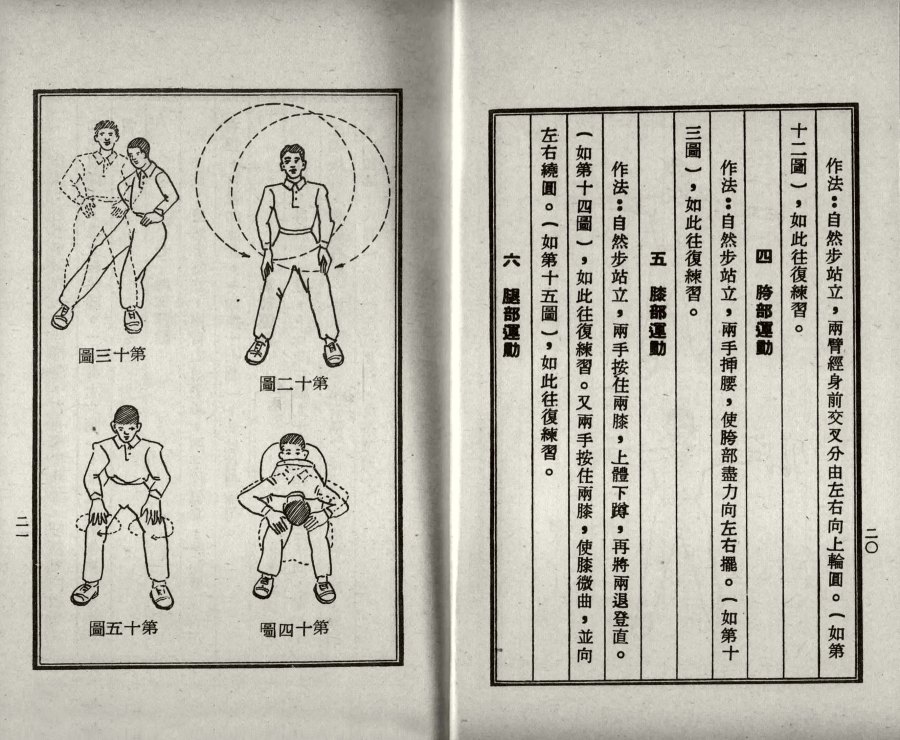 作法：自然步站立，兩臂經身前交叉分由左右向上輪圓。（如第
十二圖），如此往復練習。
四　胯部運動
作法：自然步站立，兩手挿腰，使胯部盡力向左右擺。（如第十
三圖），如此往復練習。
五　膝部運動
作法：自然步站立，兩手按住兩膝，上體下蹲，再將兩退登直。
（如第十四圖），如此往復練習。又兩手按住兩膝，使膝微曲，並向
左右繞圓。（如第十五圖），如此往復練習。
六　腿部運動
二〇
第十二圖
第十三圖
第十四圖
第十五圖
二一